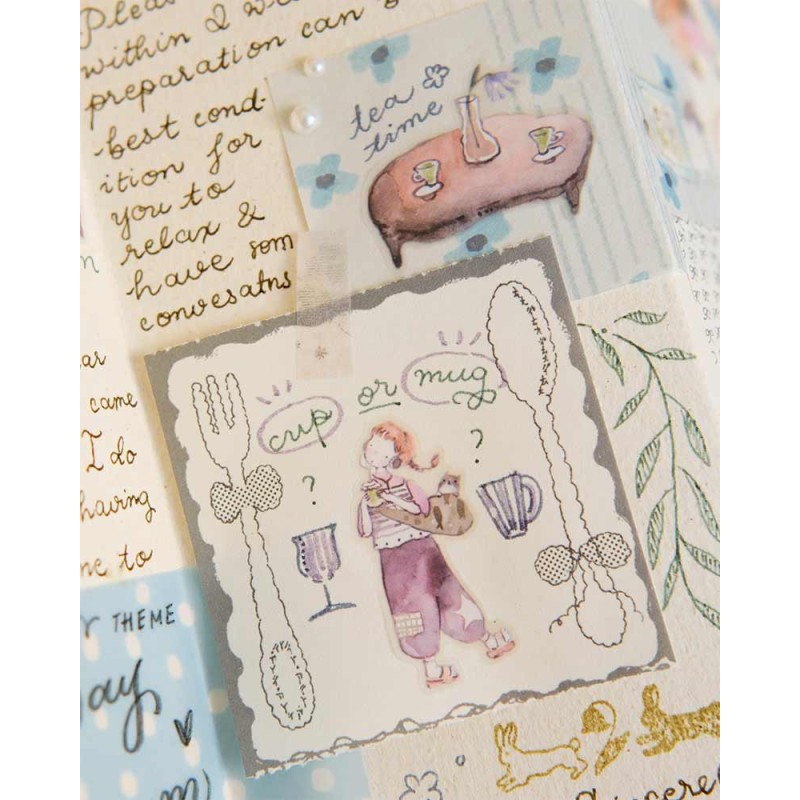 within
preparation can
-best cond-
ition for
you to
relax &
have som
convesatns
tea
time
cup or mug
?
?
came
I do
having
to
THEME
ay